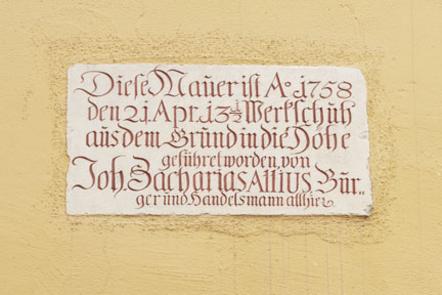 Diese Mauer ist Aº 1758
den 21. Apr. 13½ Werkschuh
aus dem Grund in die Höhe
geführet worden, von
Joh. Zacharias Allius, Bür-
ger und Handelsmann allhier